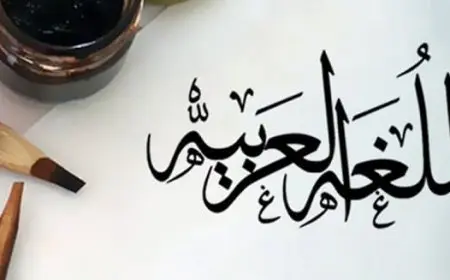 للُغَه العَربيةُ